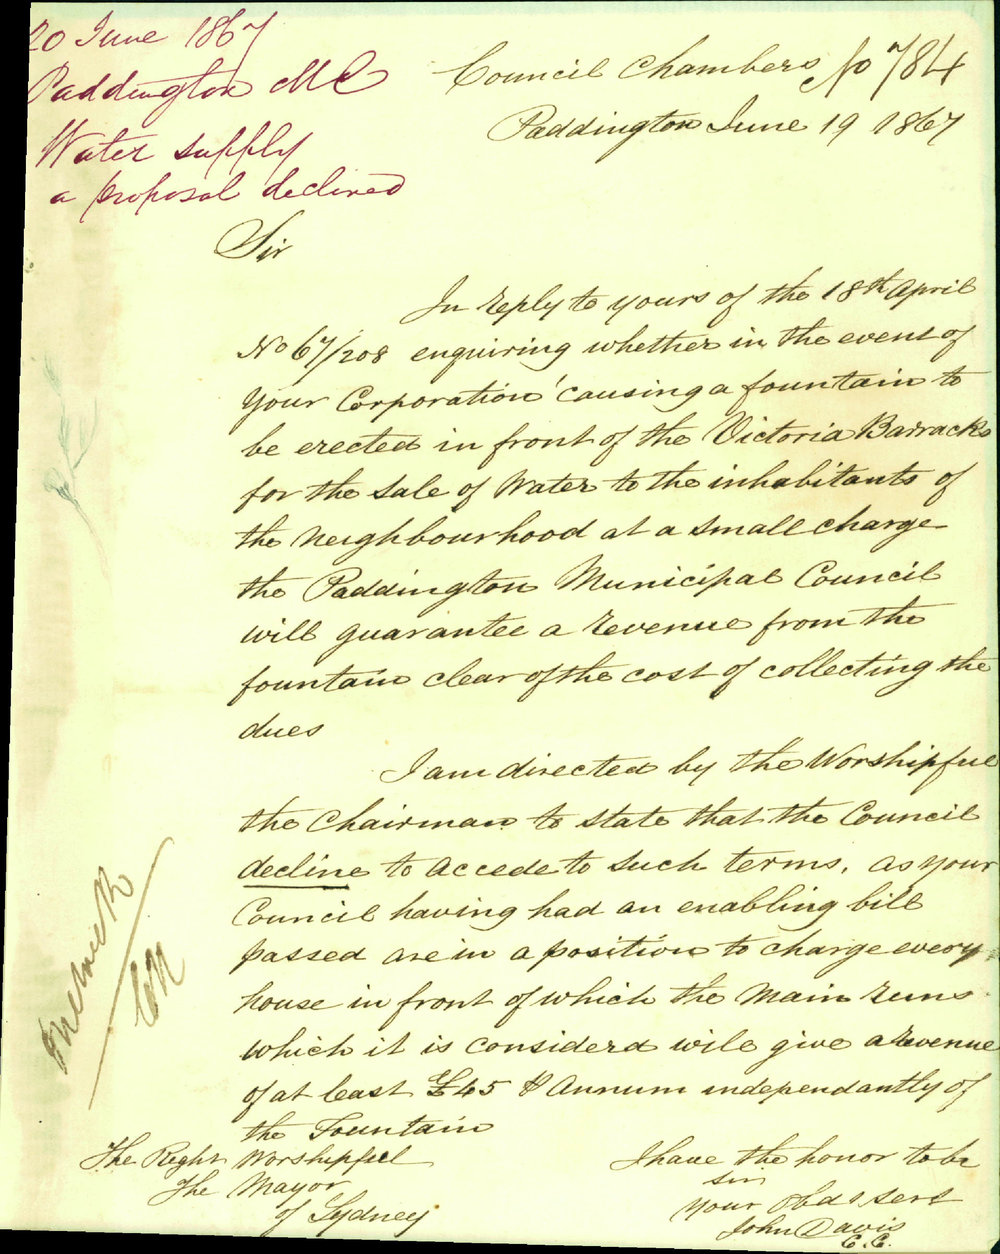 20 June 1867
Paddington M C
Water supply
a proposal declined
No 784
Council Chambers
Paddington June 19 1867
Sir
In reply to yours of the 18th April
No 67/208 enquiring whether in the event of
your Corporation causing a fountain to
be erected in front of the Victoria Barracks
for the sale of Water to the inhabitants of
the neighbourhood at a small charge
the Paddington Municipal Council
will guarantee a revenue from the
fountain clear of the cost of collecting the
dues
I am directed by the Worshipful
the Chairman to state that the Council
decline to accede to such terms, as your
Council having had an enabling bill
passed are in a position to charge every
house in front of which the main runs
which it is considerd will give a revenue
of at least £45 ⅌ Annum independantly of
the Fountain
I have the honor to be
Sir
your Obdt Servt
John Davis
C.C.
The Right Worshipful
The Mayor
of Sydney